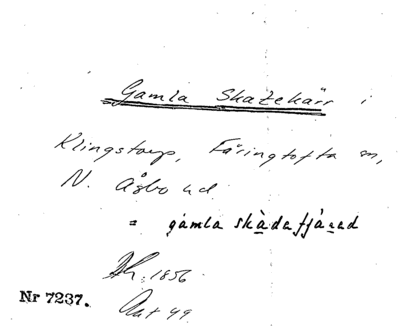 Gamla Skatekärr i
Klingstorp, Färingtofta sn,
N. Åsbo hd
= gamla skàdafjárad
1856
Nr 7237.
Ant 49